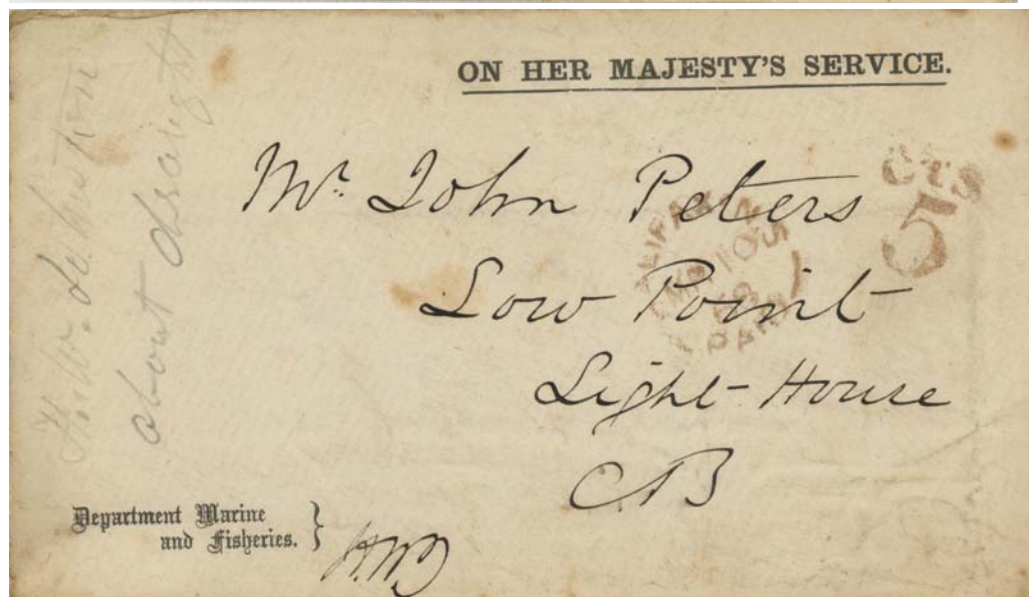 ON HER MAJESTY'S SERVICE.
Mr. John Peters
Low Point
Light-House
C.B
CTS
5
HALIFAX N.S
10
PAID
about draught
Department Marine
and Fisheries.